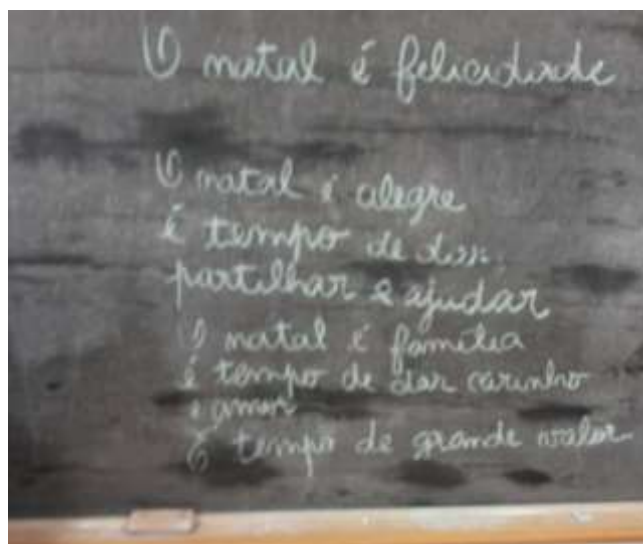 O natal é felicidade
O natal é alegre
é tempo de dar,
partilhar e ajudar
O natal é família
é tempo de dar carinho
e amor
É tempo de grande valor